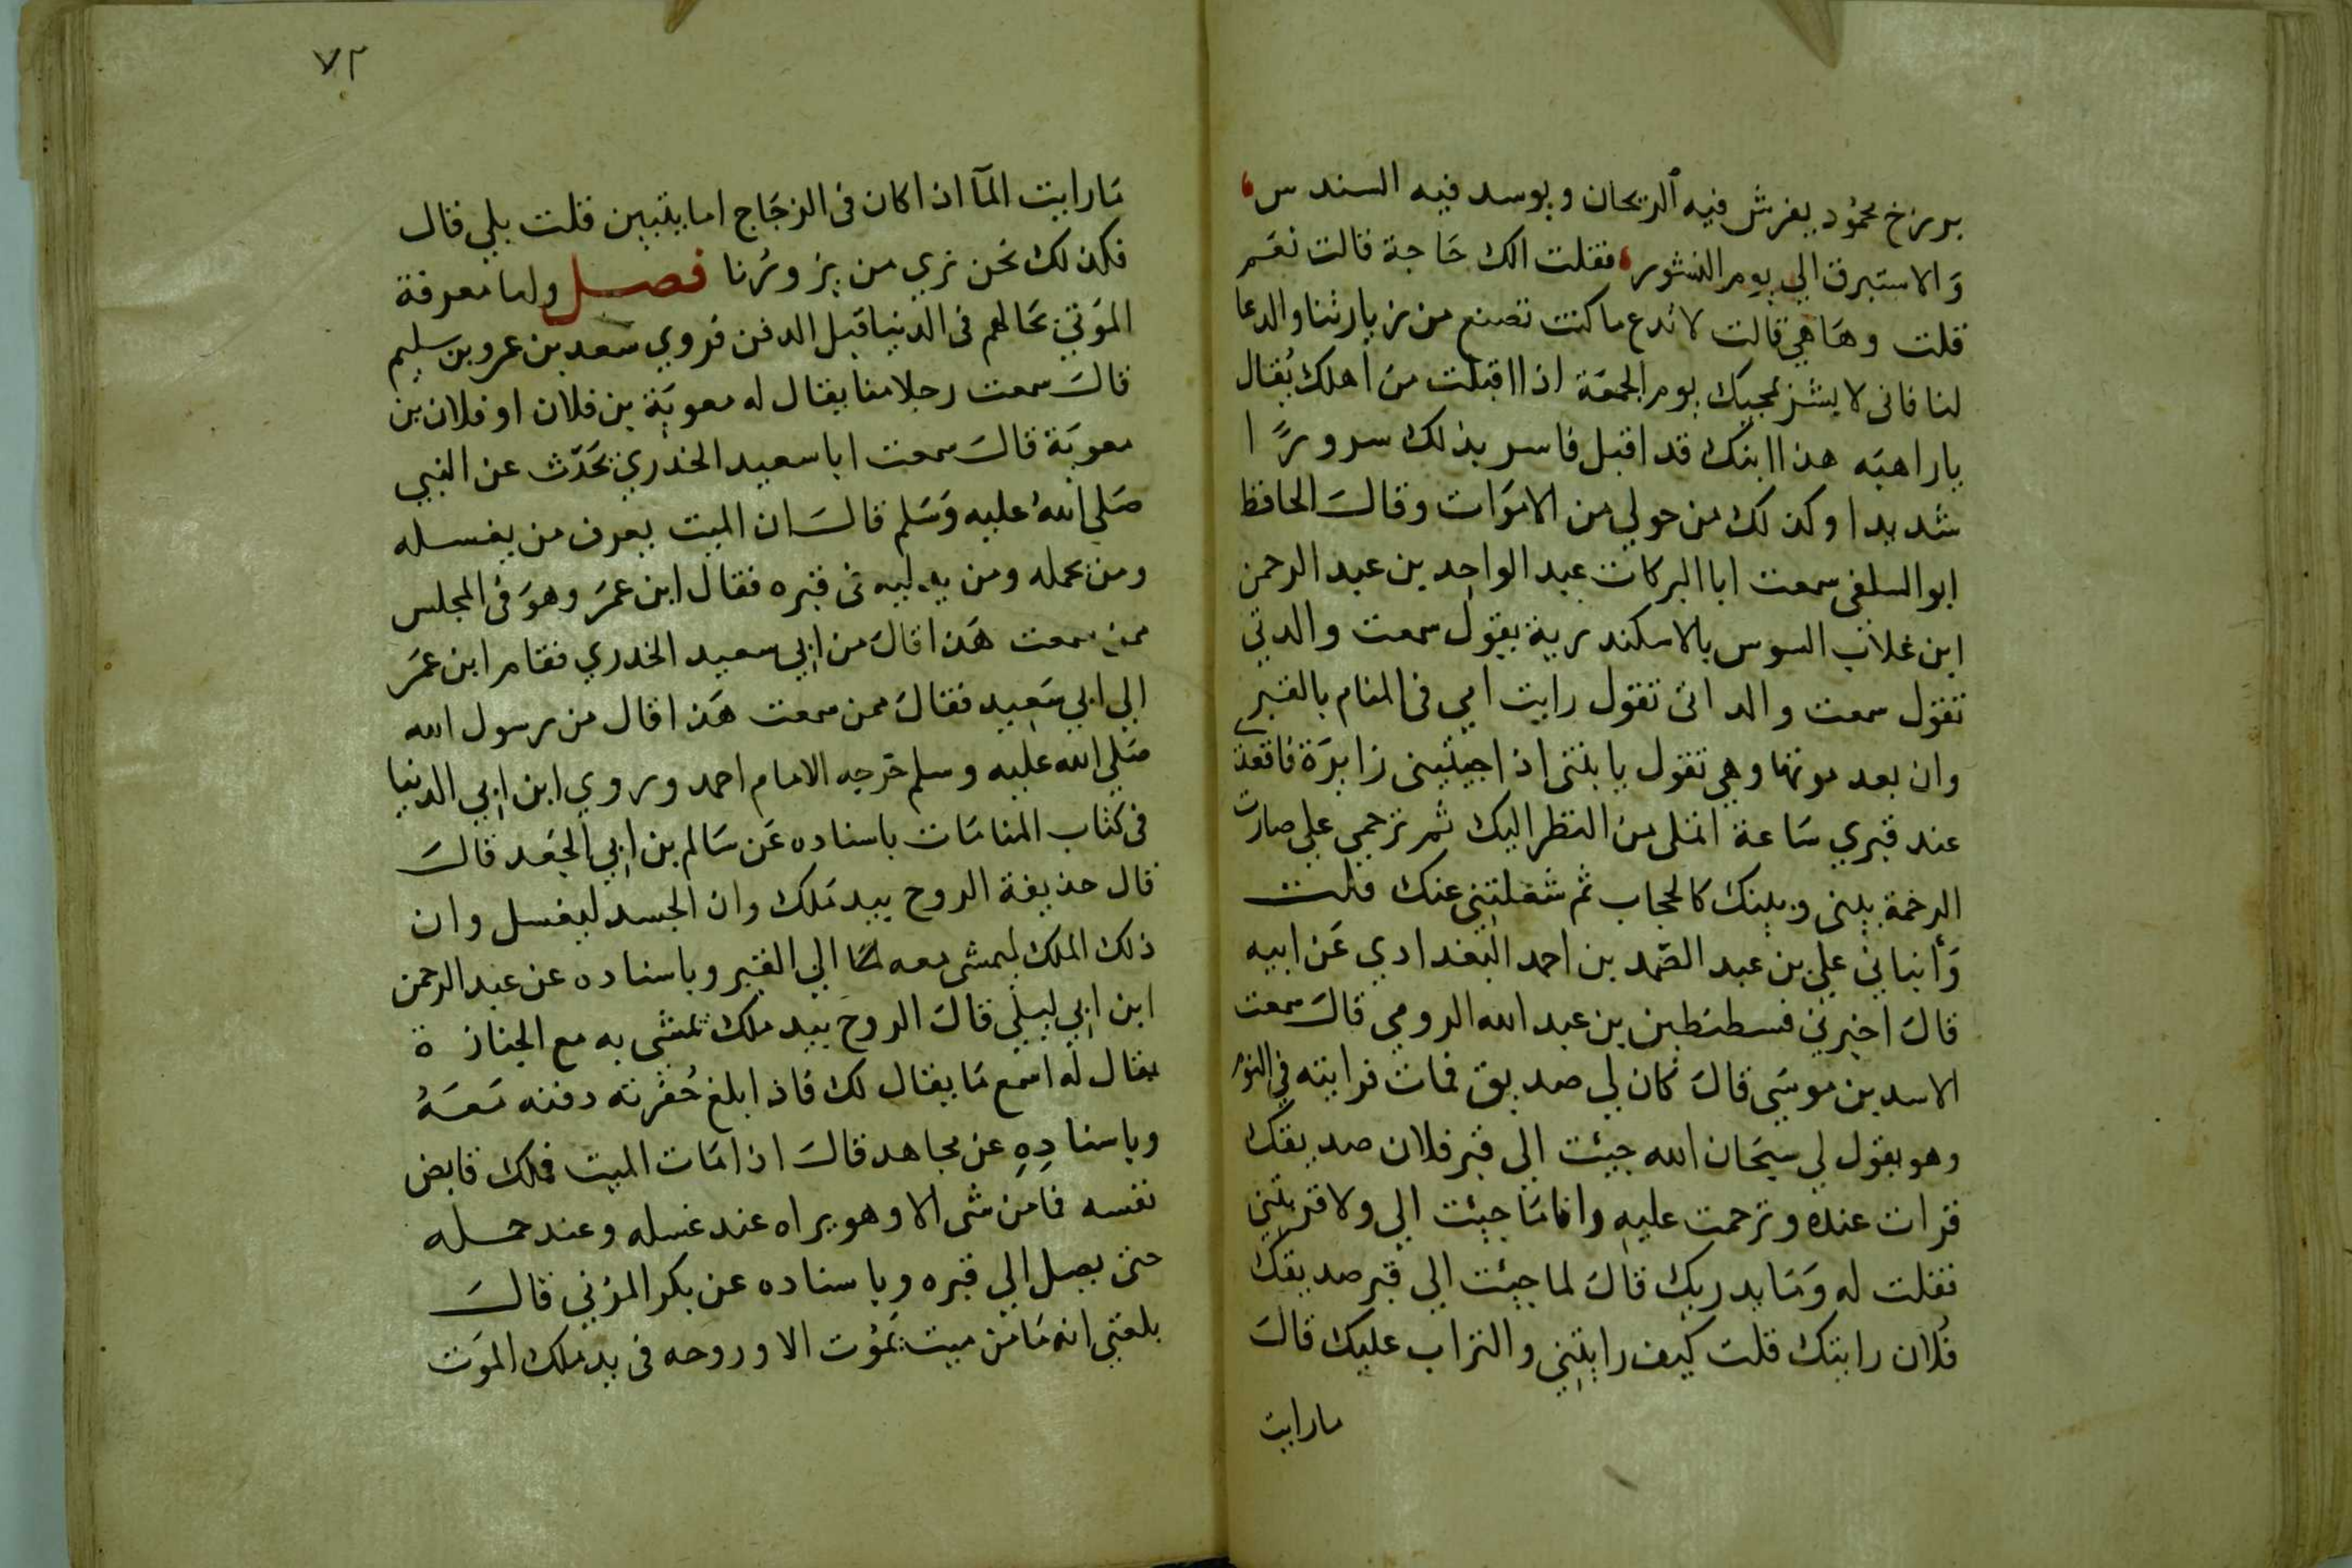 برزخ محمود يفرش فيه الريحان ويوسد فيه السندس
والاستبرق الي يوم النشور فقلت الك حاجة قالت نعم
قلت وما هي قالت لا تدع ما كنت تصنع من زيارتنا والدعا
لنا فاني لا بشر بمجيك يوم الجمعة اذا اقبلت من اهلك يقال
يا راهبه هذا ابنك قد اقبل فاسر بذلك سرورا
شديدا وكذلك من حولي من الاموات وقال الحافظ
ابو السلفي سمعت ابا البركات عبد الواحد بن عبد الرحمن
ابن غلاب السوس بالاسكندرية يقول سمعت والدتي
تقول سمعت والداتي تقول رايت امي في المنام بالقبر
وان بعد موتها وهي تقول يا بنتي اذا جيتيني زايرة فاقعد
عند قبري ساعة اتملي من النظر اليك ثم ترحمي علي صارت
الرحمة بيني وبينك كالحجاب ثم شغلتني عنك قلت
وأنباني علي بن عبد الصمد بن احمد البغدادي عن ابيه
قال اخبرني قسطنطين بن عبد الله الرومي قال سمعت
الاسد بن موسي قال كان لي صديق فمات فرايته في النوم
وهو يقول لي سبحان الله جيئت الي قبر فلان صديقك
قرات عنده وترحمت عليه وانا ما جيئت الي ولا قربتني
فقلت له وما يدريك قال لما جيئت الي قبر صديقك
فلان رايتك قلت كيف رايتني والتراب عليك قال
مارايت
٧٢
مارايت المآ اذا كان في الزجاج اما يتبين قلت بلي قال
فكذلك نحن نري من يزورنا فصل ولما معرفة
الموتي بحالهم في الدنيا قبل الدفن فروي سعد بن عمرو بن سليم
قال سمعت رجلا منا يقال له معوية بن فلان او فلان بن
معوية قال سمعت ابا سعيد الخدري يحدث عن النبي
صلي الله عليه وسلم قال ان الميت يعرف من يغسله
ومن يحمله ومن يدليه في قبره فقال ابن عمر وهو في المجلس
ممن سمعت هذا قال من ابي سعيد الخدري فقام ابن عمر
الي ابي سعيد فقال ممن سمعت هذا قال من رسول الله
صلي الله عليه وسلم خرجه الامام احمد وروي ابن ابي الدنيا
في كتاب المنامات باسناده عن سالم بن ابي الجعد قال
قال حذيفة الروح بيد ملك وان الجسد ليغسل وان
ذلك الملك ليمشي معه الي القبر وباسناده عن عبد الرحمن
ابن ابي ليلي قال الروح بيد ملك تمشي به مع الجنازة
يقال له اسمع ما يقال لك فاذا بلغ حفرته دفنه معه
وباسناده عن مجاهد قال اذا مات الميت فملك قابض
نفسه فما من شي الا وهو يراه عند غسله وعند حمله
حتي يصل الي قبره وباسناده عن بكر المزني قال
بلغني انه ما من ميت يموت الا وروحه في يد ملك الموت